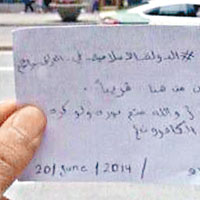 #الدولة_الاسلامية_في_العراق_والشام
من هنا قريباً.
(والله متم نوره ولو كره
الكافرون)
20/June/2014/